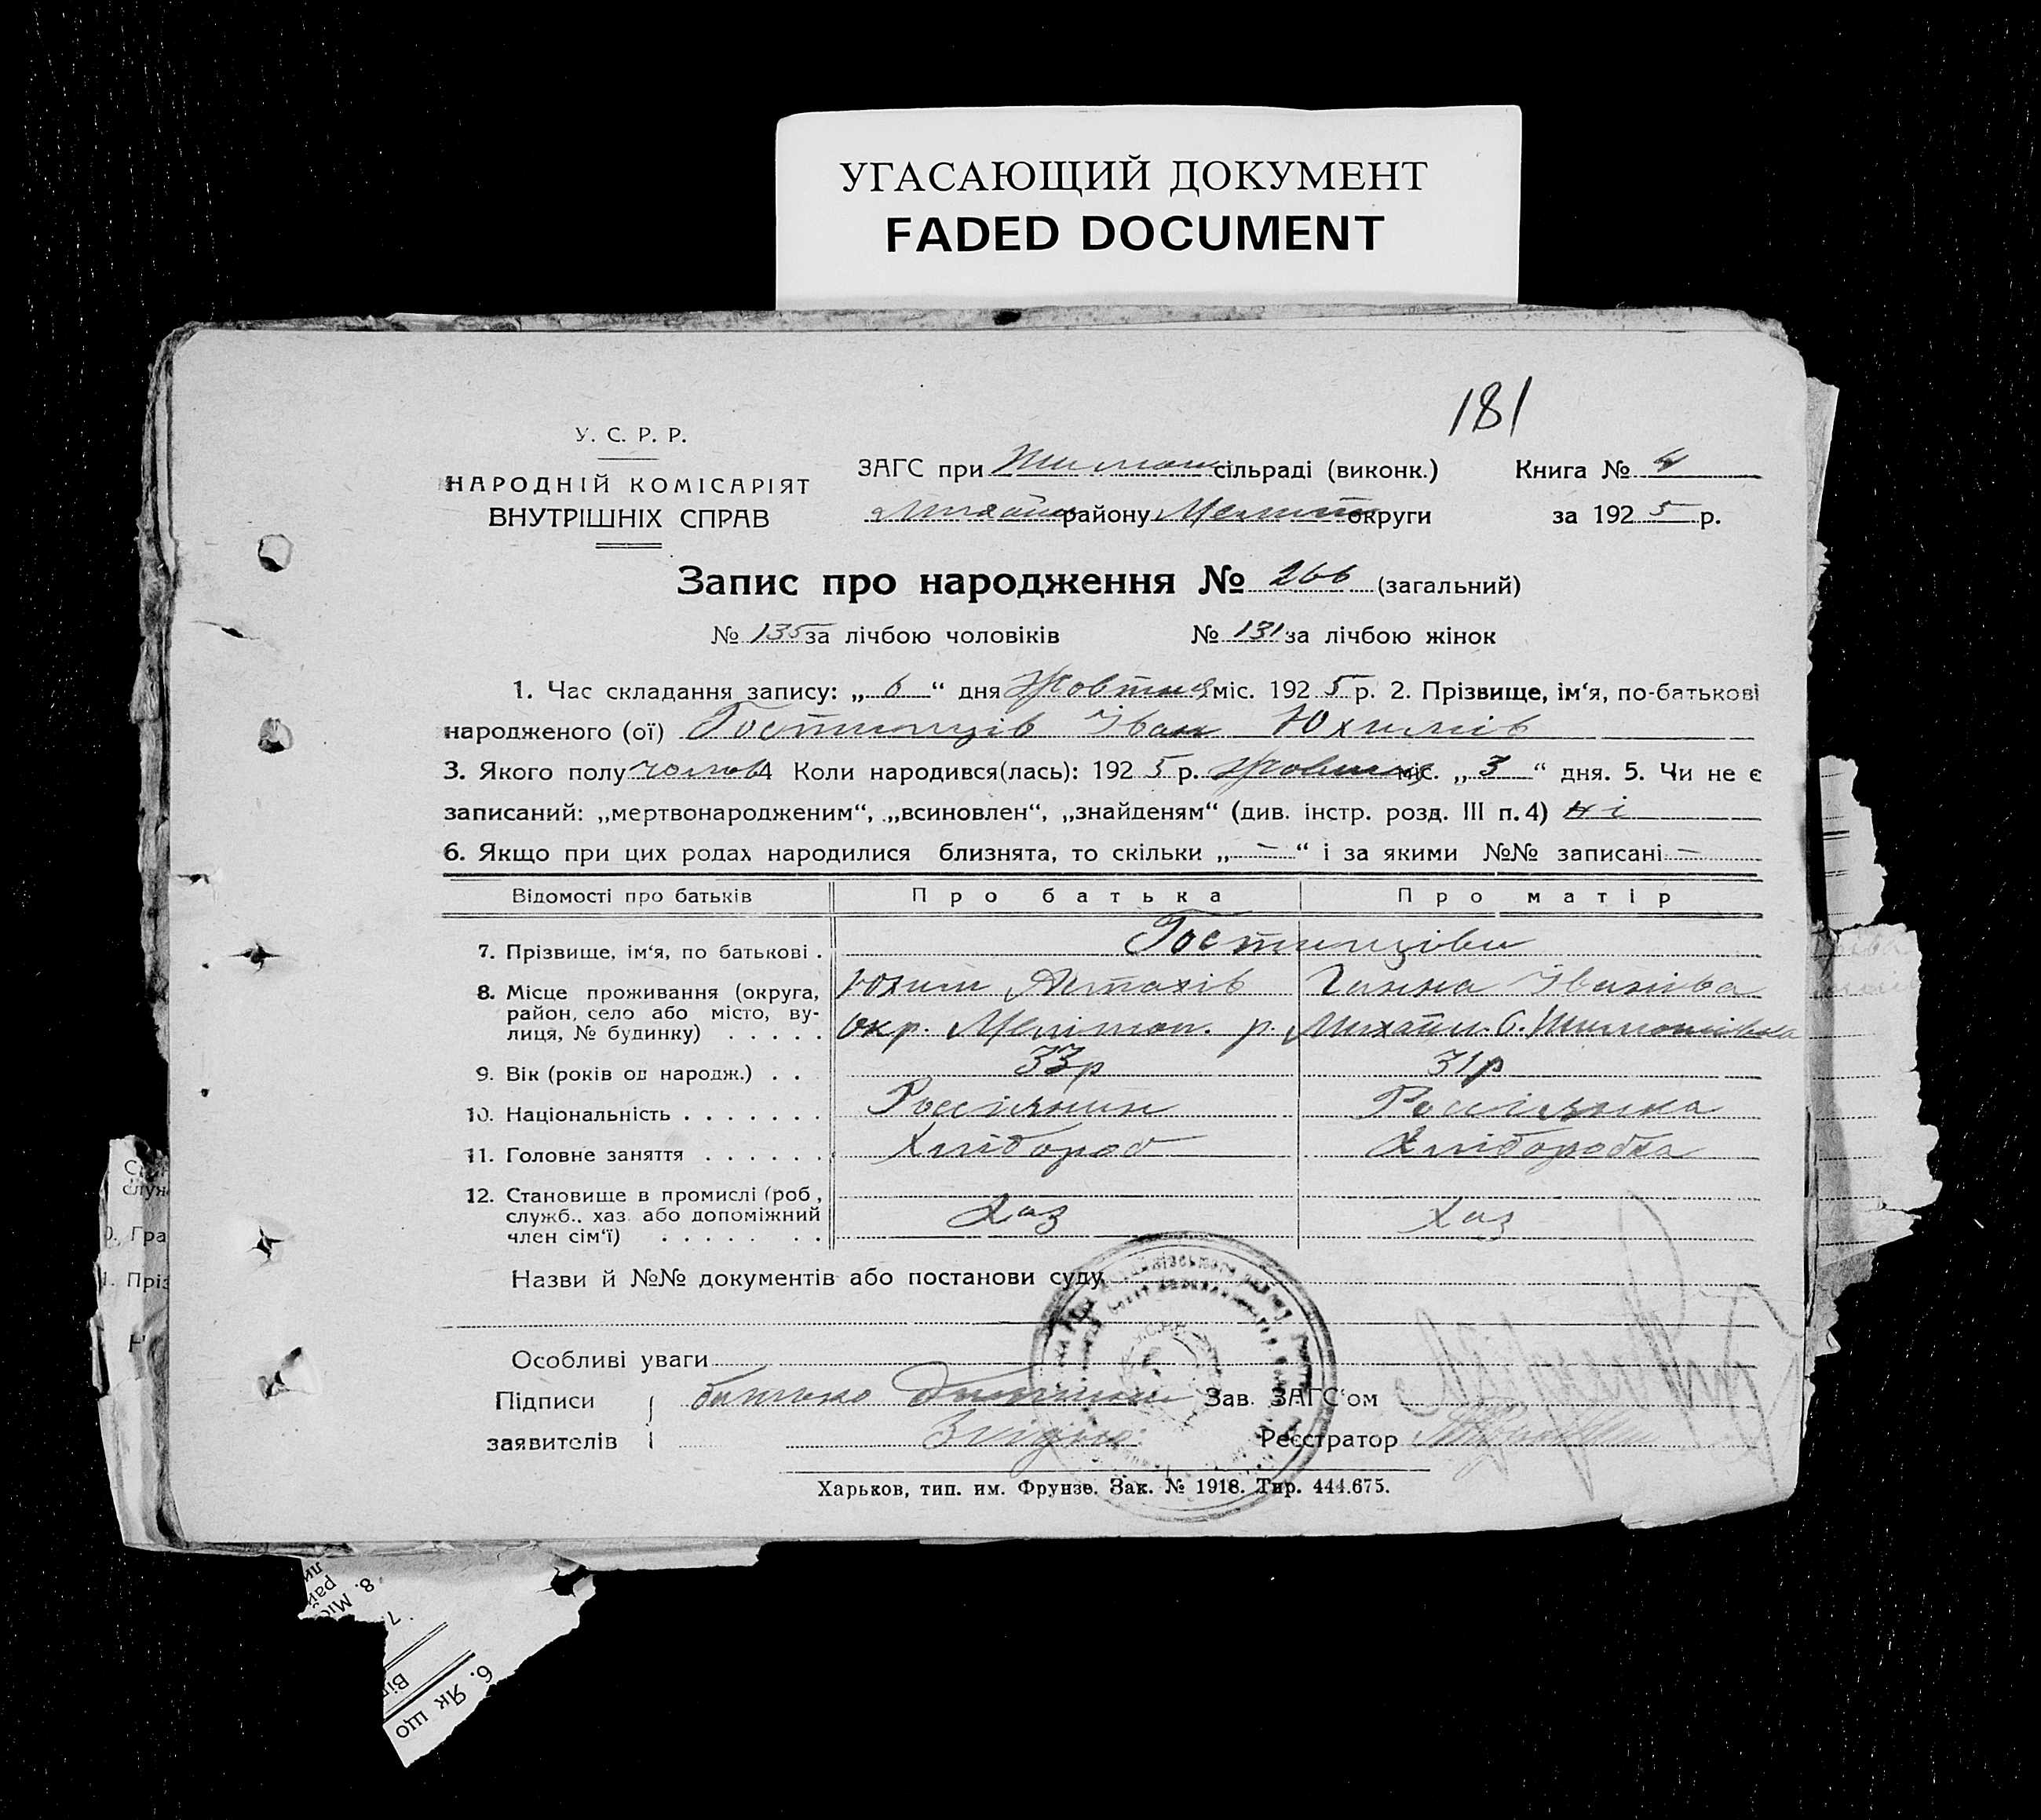 УГАСАЮЩИЙ ДОКУМЕНТ
FADED DOCUMENT
181
У. С. Р. Р.
НАРОДНІЙ КОМІСАРІЯТ
ВНУТРІШНІХ СПРАВ
ЗАГС при Тимош сільраді (виконк.) Книга № 4
Михайл району Мелітоп округи за 1925 р.
Запис про народження № 266 (загальний)
№ 135 за лічбою чоловіків № 131 за лічбою жінок
1. Час складання запису: „ 6 “ дня Жовтня міс. 1925 р. 2. Прізвище, ім‘я, по-батькові
народженого (ої) Гостинціів Іван Юхимів
3. Якого полу чолов 4 Коли народився(лась): 1925 р. Жовтня міс. „ 3 “ дня. 5. Чи не є
записаний: „мертвонародженим“, „всиновлен“, „знайденям“ (див. інстр. розд. III п. 4) ні
6. Якщо при цих родах народилися близнята, то скільки „ – “ і за якими №№ записані –
Відомості про батьків Про батька Про матір
7. Прізвище, ім‘я, по батькові . Гостинціви
Юхим Астахів Ганна Іванівна
8. Місце проживання (округа,
район, село або місто, ву-
лиця, № будинку) . . . . . Окр. Меліптоп. р. Михайл. С. Тимошівка
9. Вік (років од народж.) . . 33 р 31 р
10. Національність . . . . . . . Россіянин Россіянка
11. Головне заняття . . . . . . Хлібороб Хліборобка
12. Становище в промислі (роб.,
служб., хаз. або допоміжний
член сім‘ї) . . . . . . . Хаз Хаз
Назви й №№ документів або постанови суду
Особливі уваги
Підписи батько Зав. ЗАГС‘ом
заявителів Реєстратор
Харьков, тип. им. Фрунзе. Зак. № 1918. Тир. 444.675.